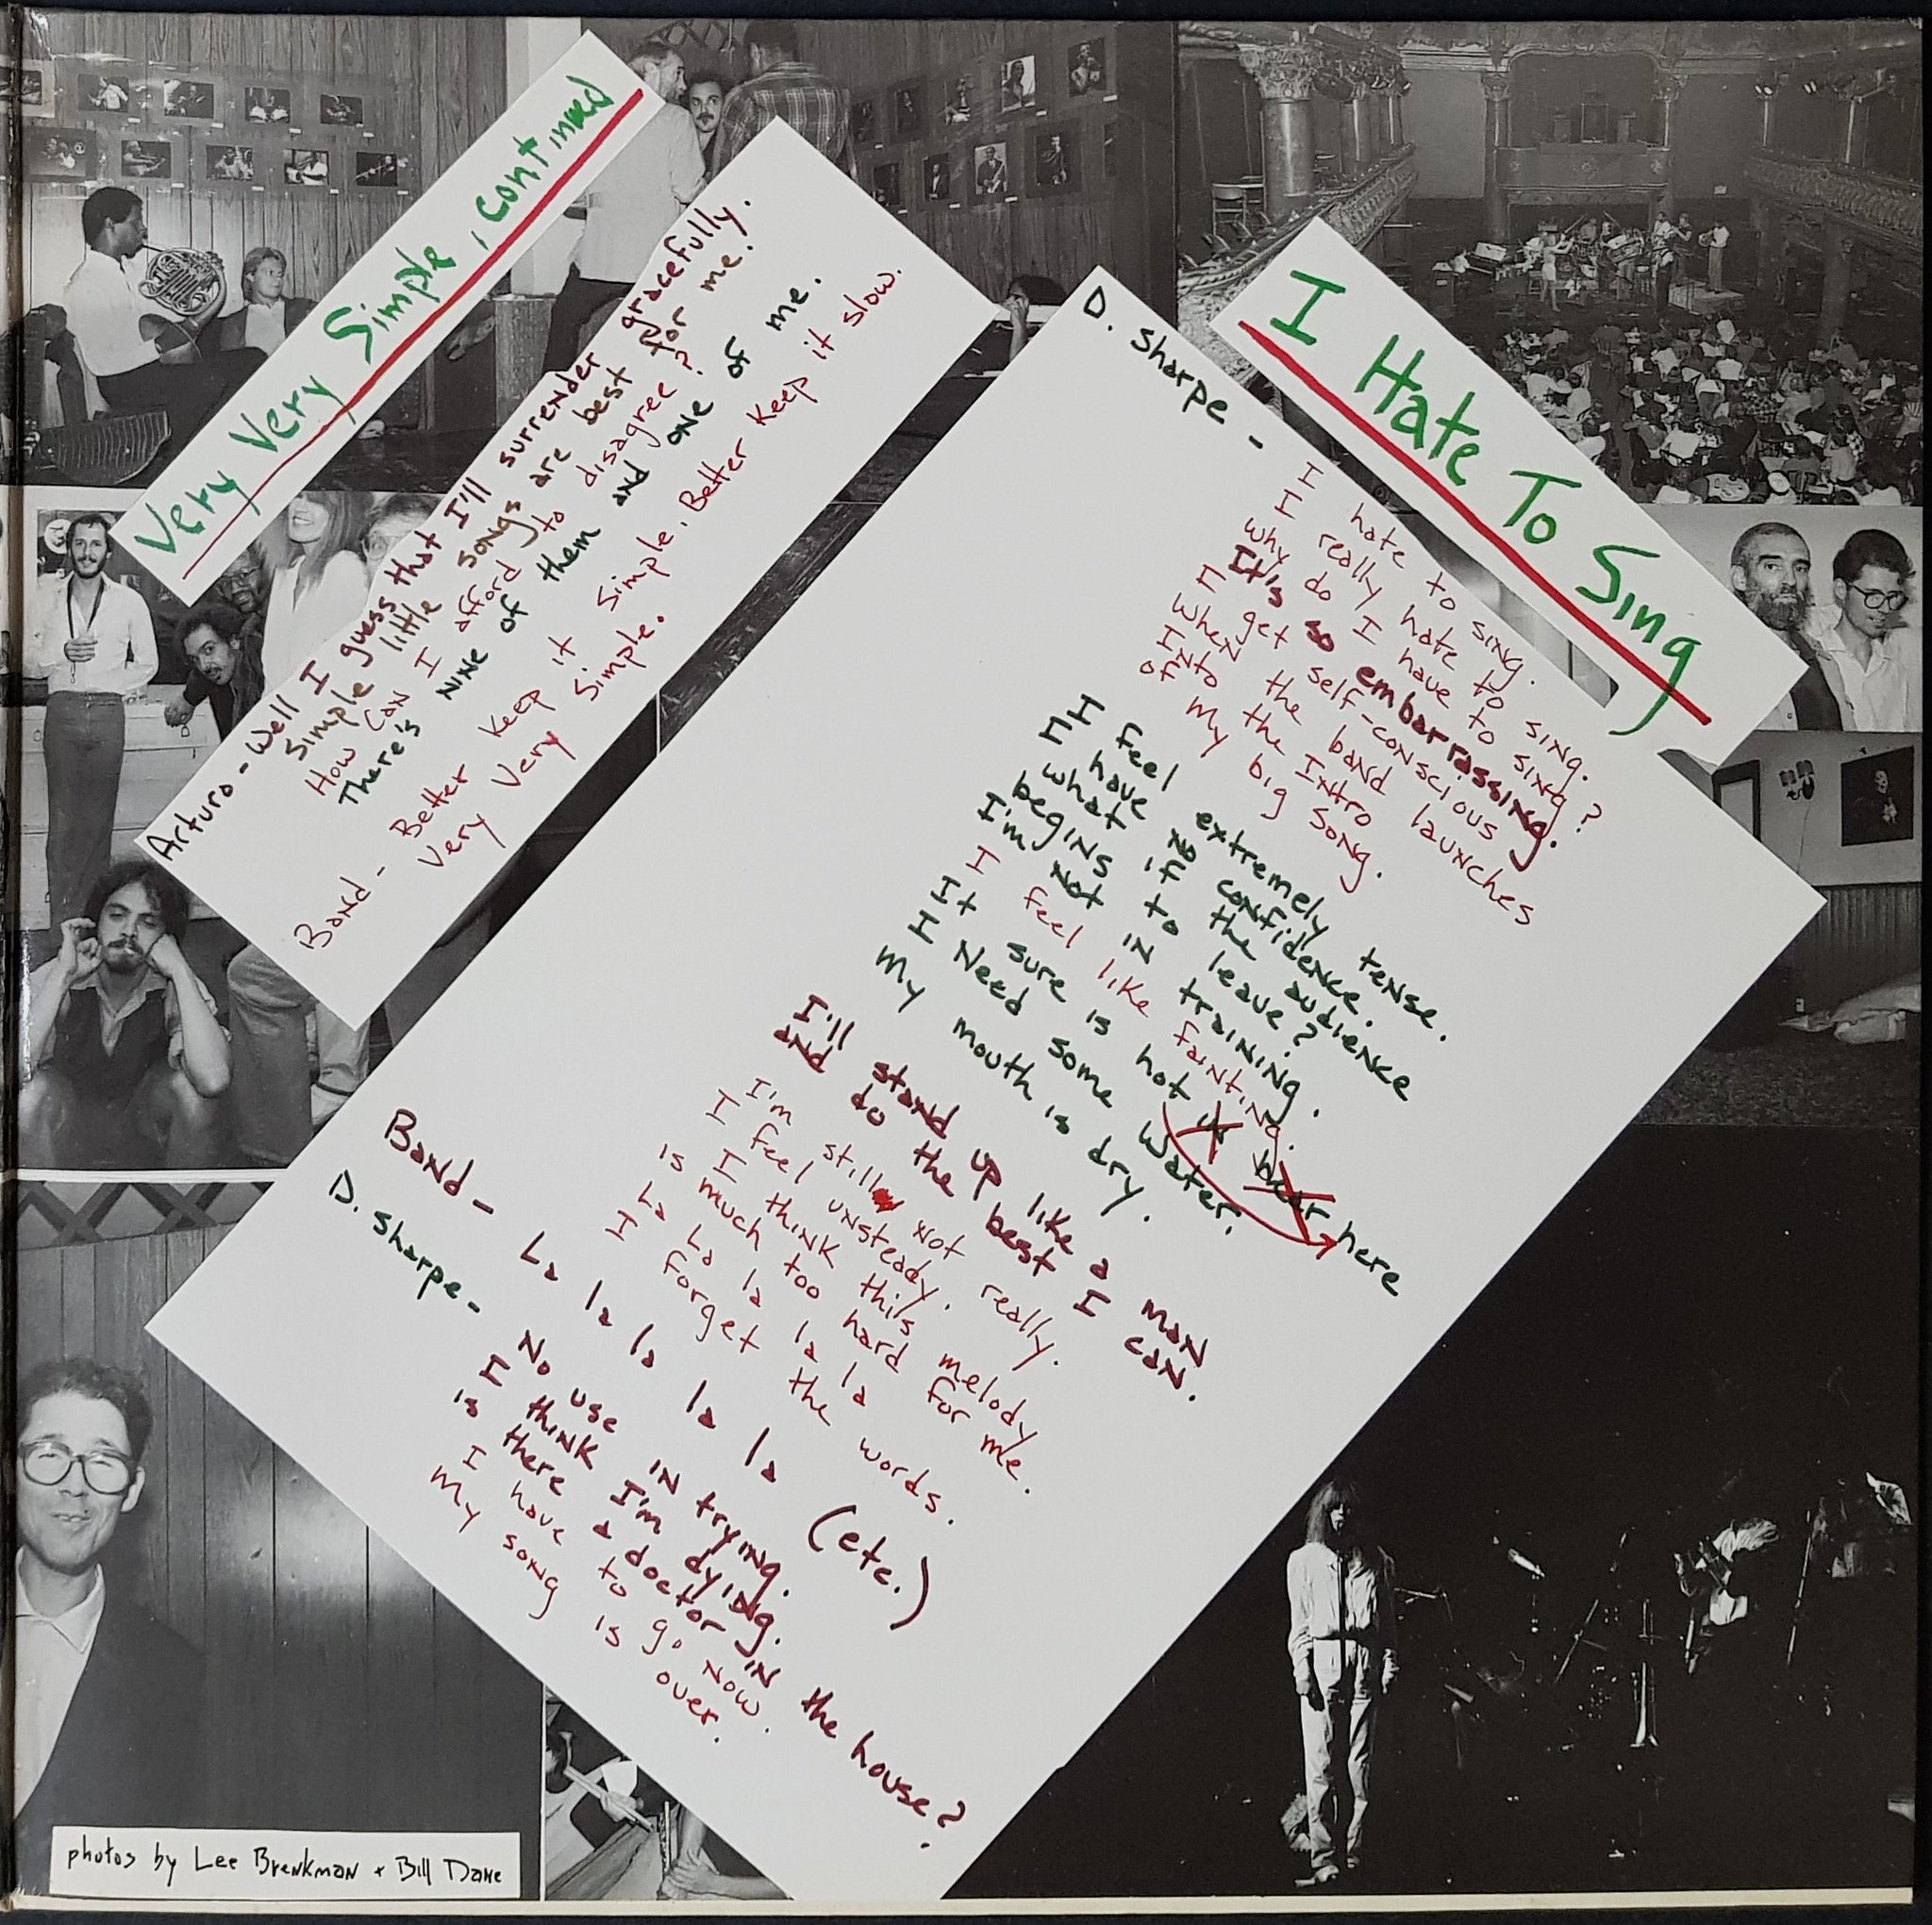 Very Very Simple, continued
Arturo - Well I guess that I'll surrender gracefully.
Simple little songs are best for me.
How can I afford to disagree?
There's nine of them and one of me.
Band - Better keep it simple. Better keep it slow.
Very Very Simple.
I Hate To Sing
D. Sharpe -
I hate to sing.
I really hate to sing.
Why do I have to sing?
It's so embarrassing.
I get self-conscious
When the band launches
Into the Intro
of My big Song.
I feel extremely tense.
I have no confidence.
what if the audience
begins to leave?
I'm not in training.
I feel like fainting.
It sure is hot in here
I Need some water.
My mouth is dry.
I'll stand up like a man
and do the best I can.
I'm still not really.
I feel unsteady.
I think this melody
is much too hard for me.
La la la la la la
I forget the words.
Band - La la la la la (etc.)
D. Sharpe - No use in trying.
I think I'm dying.
is there a doctor in the house?
I have to go now.
My song is over.
photos by Lee Brenkman + Bill Dane